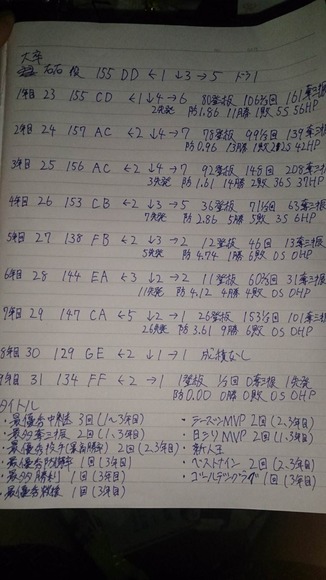 大卒
右右 投 155 DD ←1 ↓3 →5 ドラ1
1年目 23 155 CD ←1 ↓4 →6 80登板 106⅔回 161奪三振
2先発 防1.86 11勝 1敗 5S 56HP
2年目 24 157 AC ←2 ↓4 →7 78登板 99⅓回 139奪三振
防0.96 13勝 42HP
3年目 25 156 AC ←2 ↓4 →7 92登板 148回 208奪三振
3先発 防1.61 14勝 2敗 3S 37HP
4年目 26 153 CB ←2 ↓3 →5 36登板 71⅓回 63奪三振
7先発 防2.86 5勝 5敗 3S 6HP
5年目 27 138 FB ←2 ↓3 →2 12登板 46回 13奪三振
5先発 防4.74 1勝 6敗 0S 0HP
6年目 28 144 EA ←3 ↓2 →2 11登板 60⅔回 31奪三振
11先発 防4.12 4勝 4敗 0S 0HP
7年目 29 147 CA ←5 ↓2 →1 26登板 153⅓回 101奪三振
26先発 防3.61 9勝 6敗 0S 0HP
8年目 30 129 GE ←2 ↓1 →1 成績なし
9年目 31 134 FF ←2 →1 1登板 ⅓回 0奪三振 1先発
防0.00 0勝 0敗 0S 0HP
タイトル
・最優秀中継 3回(1~3年目) ・シーズンMVP 2回(2.3年目)
・最多奪三振 2回(1.3年目) ・日シリMVP 2回(1.3年目)
・最優秀投手(最高勝率) 2回(2.3年目) ・新人王
・最優秀防御率 1回(3年目) ・ベストナイン 2回(2.3年目)
・最多勝利 1回(3年目) ・ゴールデングラブ 1回(3年目)
・最優秀救援 1回(3年目)